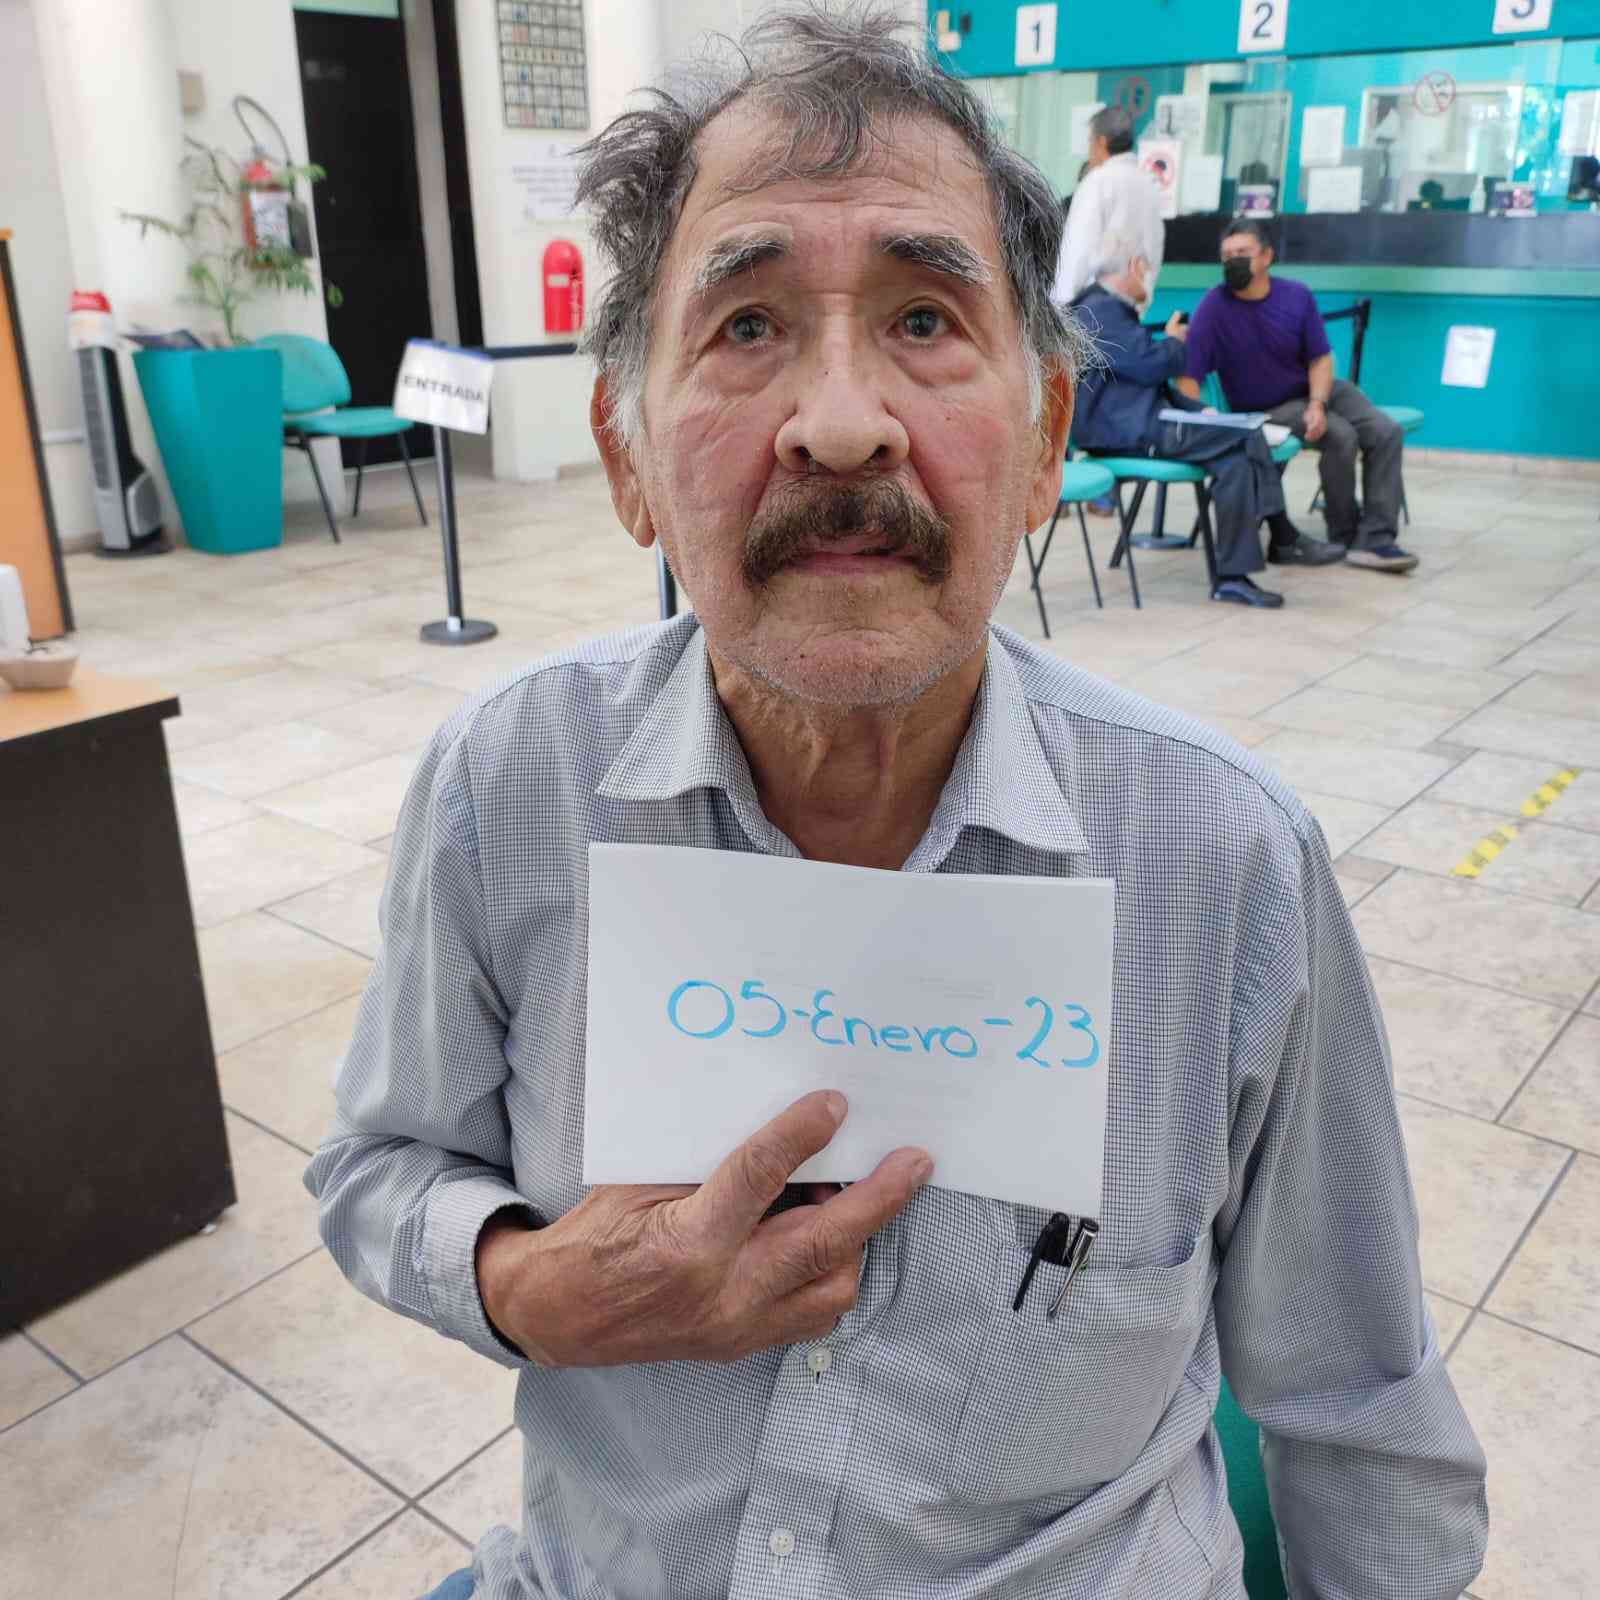 1
2
3
ENTRADA
05-Enero-23